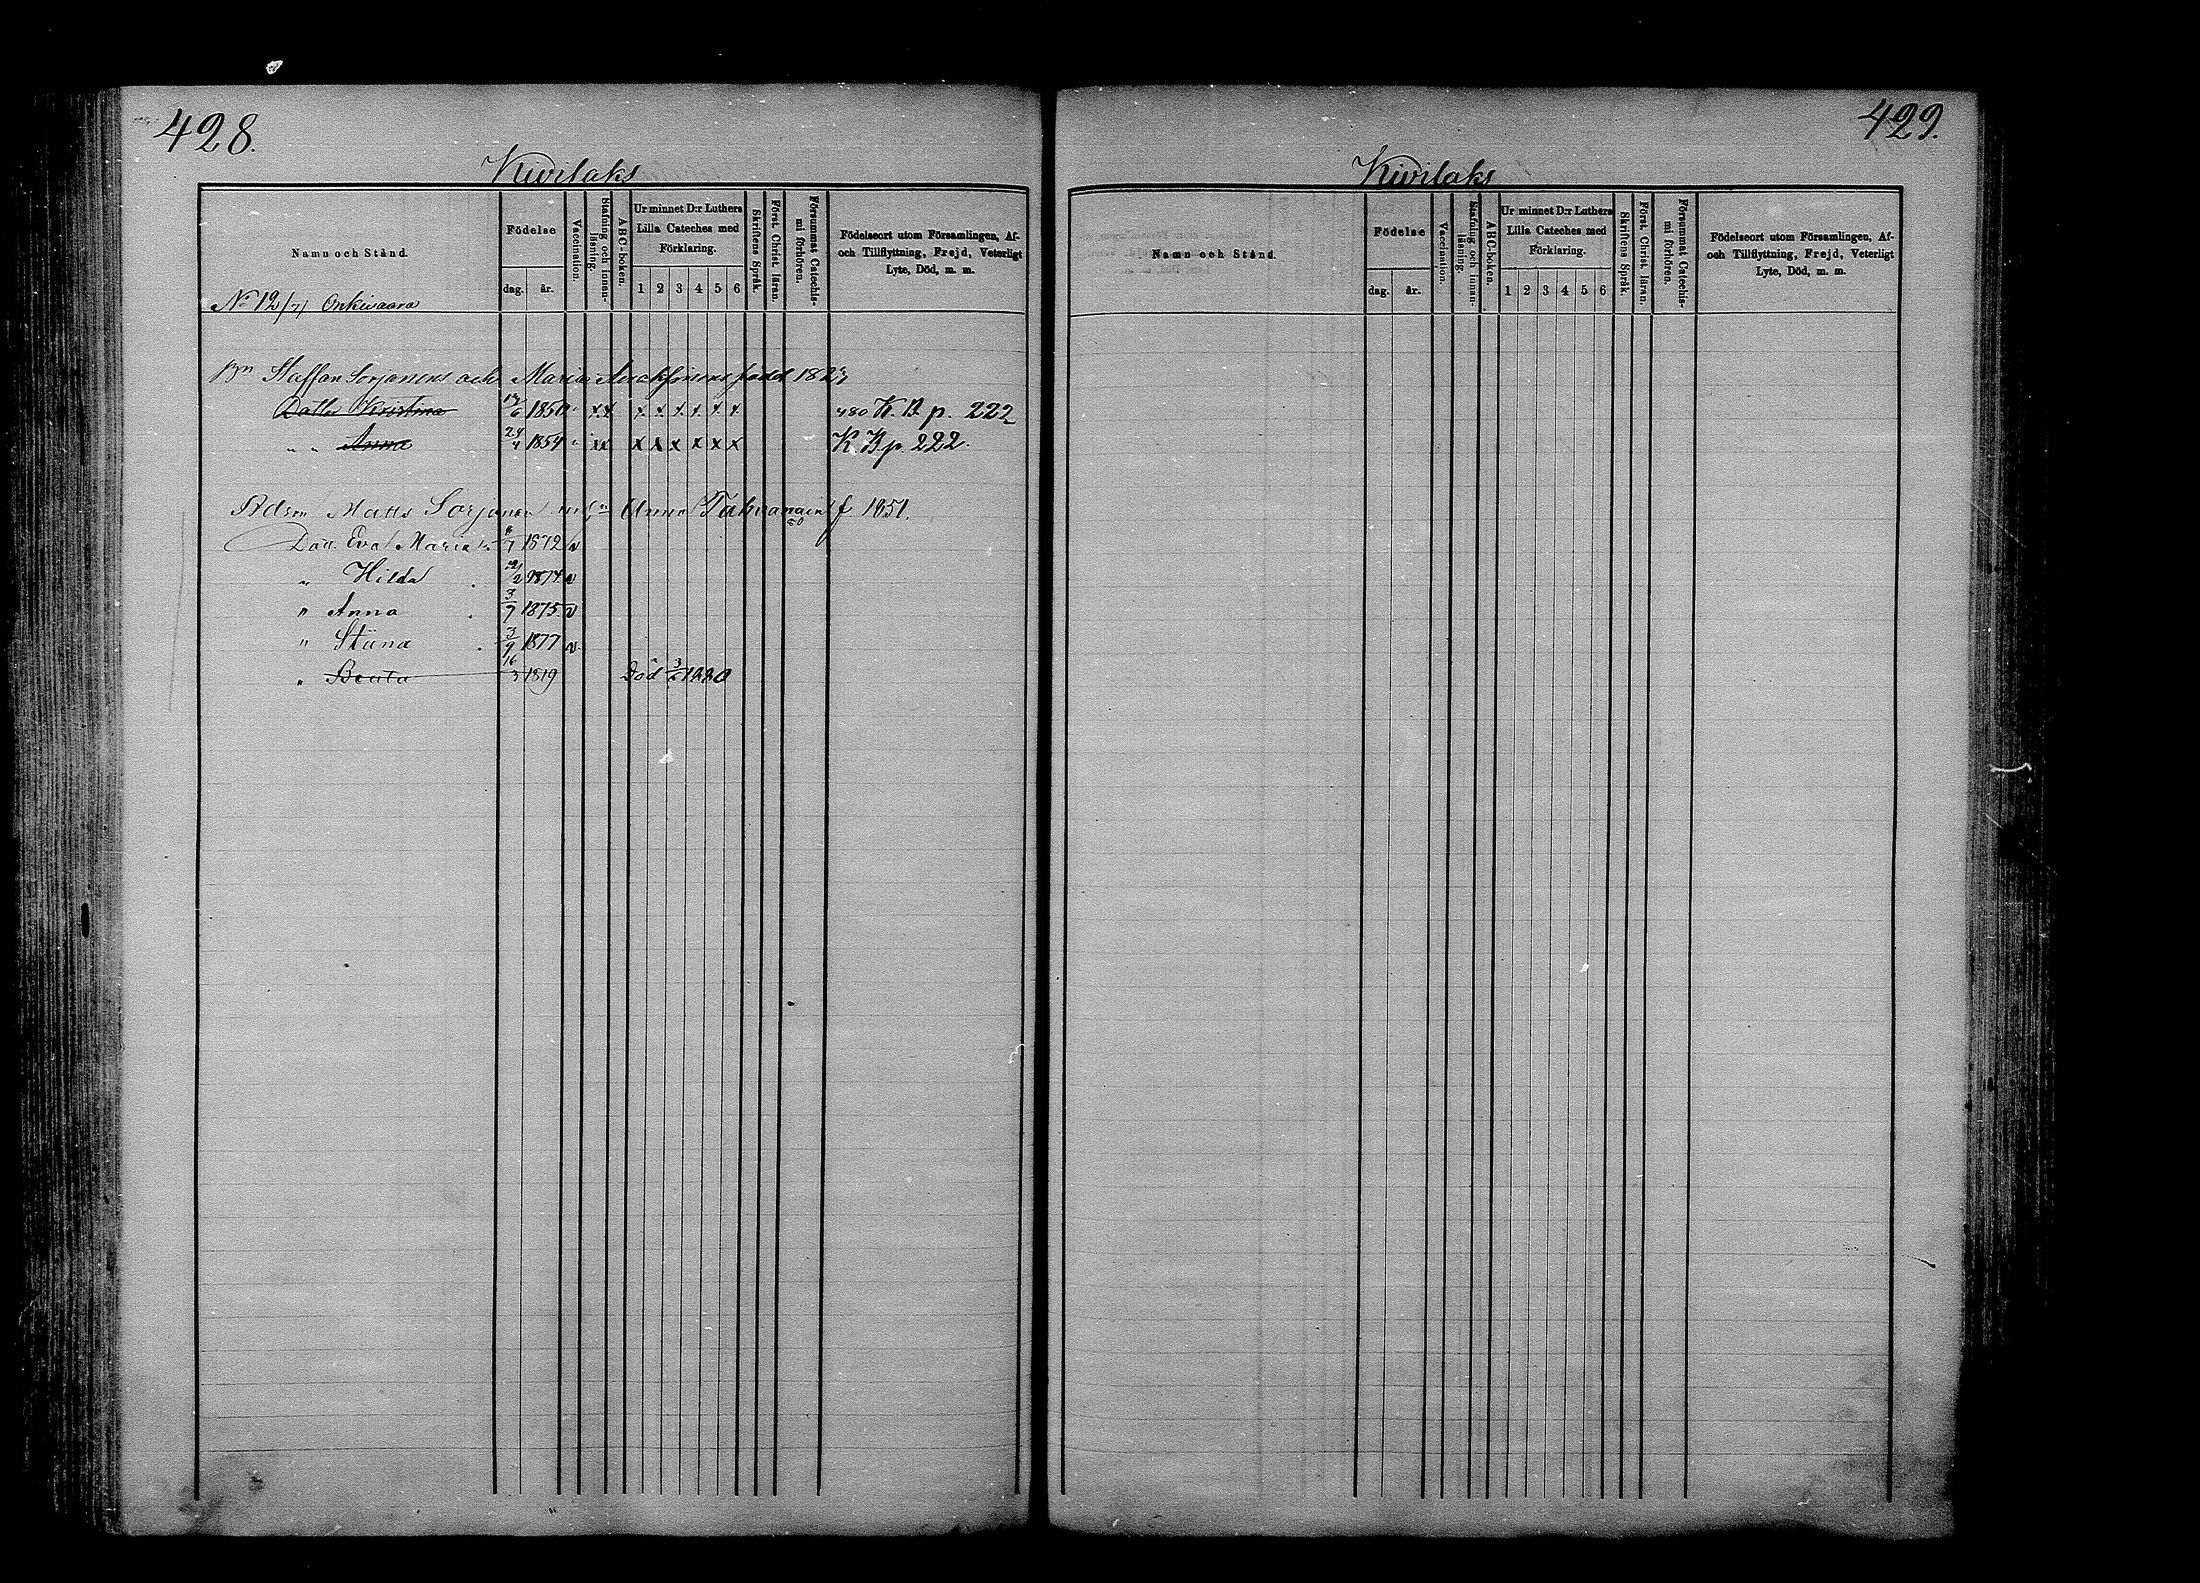 428.
Kivilaks
Namn och Stånd.
Födelse
dag. år.
Vaccination.
Stafning och innan-läsning.
ABC-boken.
Ur minnet D:r Luthers
Lilla Cateches med
Förklaring.
1 2 3 4 5 6
Skriftens Språk.
Först. Christ. läran.
Försummat Catechis-mi förhören.
Födelseort utom Församlingen, Af-
och Tillflyttning, Frejd, Veterligt
Lyte, Död, m. m.
No 12/7/ Onkivaara
Staffan Sorjonens och Maria född 182
Dottr Kristina 6 1850 x x x x x x x x 480 K. B. p. 222
" " Anna 24/4 1854 x x x x x x x x K. B. p. 222.
Matts Sorjonen Anna Tahvanain f 1851.
Dott. Eva Maria 8/7 1872 v
" Hilda /2 1874 v
" Anna 3/7 1875 v
" Stiina 3/9 1877 v
" Beata 16/3 1879 Död 3/ 1880
429.
Kivilaks
Namn och Stånd.
Födelse
dag. år.
Vaccination.
Stafning och innan-läsning.
ABC-boken.
Ur minnet D:r Luthers
Lilla Cateches med
Förklaring.
1 2 3 4 5 6
Skriftens Språk.
Först. Christ. läran.
Försummat Catechis-mi förhören.
Födelseort utom Församlingen, Af-
och Tillflyttning, Frejd, Veterligt
Lyte, Död, m. m.